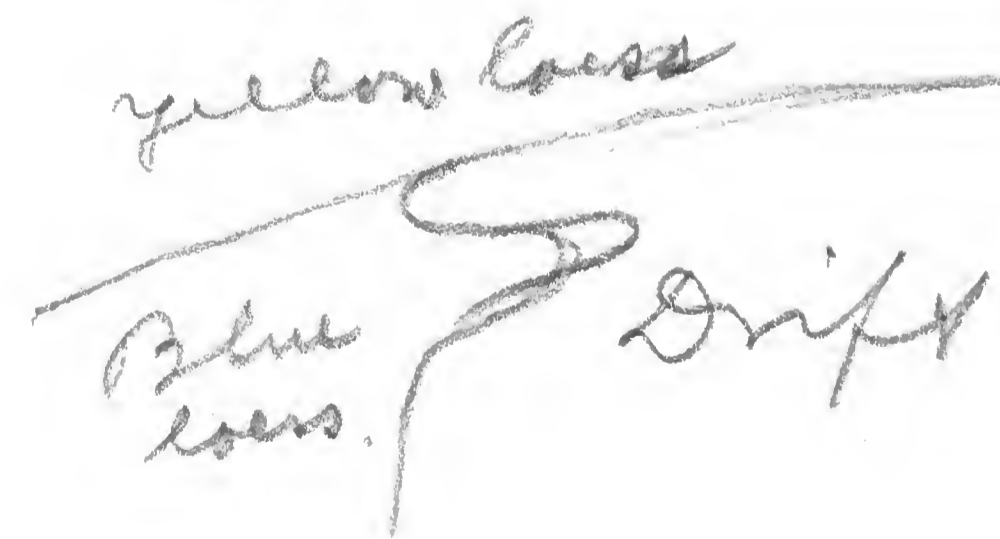 yellow loess
Blue
loess.
Drift